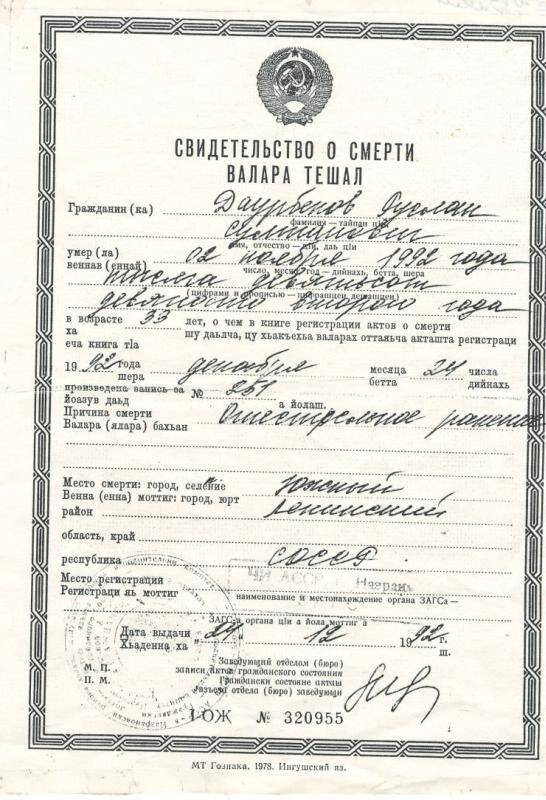 СВИДЕТЕЛЬСТВО О СМЕРТИ
ВАЛАРА ТЕШАЛ
Гражданин (ка) Даурбеков Руслан
фамилия — тайпан цӀи
имя, отчество — цӀи, даь цӀи
умер (ла) 02 ноября 1992 года
веннав (еннай) число, месяц, год — дийнахь, бетта, шера
тысяча девятьсот
(цифрами и прописью —
девяносто второго года
в возрасте 33 лет, о чем в книге регистрации актов о смерти
ха шу даьлча, цу хьакъехьа валарах оттаяьча акташта регистраци
еча книга тӀа
1992 года декабря месяца 24 числа
шера бетта дийнахь
произведена запись за № 251
йоазув даьд а йолаш.
Причина смерти Огнестрельное ранение
Валара (ялара) бахьан
Место смерти: город, селение Южный
Венна (енна) моттиг: город, юрт
район Ленинский
область, край
республика СОССР
ЧИ АССР Назрань
Место регистрации
Регистраци яь моттиг наименование и местонахождение органа ЗАГСа —
ЗАГС-а органа цӀи а йола моттиг а
Дата выдачи „24" 12 1992 г.
Хьаденна ха ш.
М. П. Заведующий отделом (бюро)
П. М. записи актов гражданского состояния
Граждански состояне акташ
язъеча отдела (бюро) заведующи
I-ОЖ № 320955
МТ Гознака. 1978. Ингушский яз.